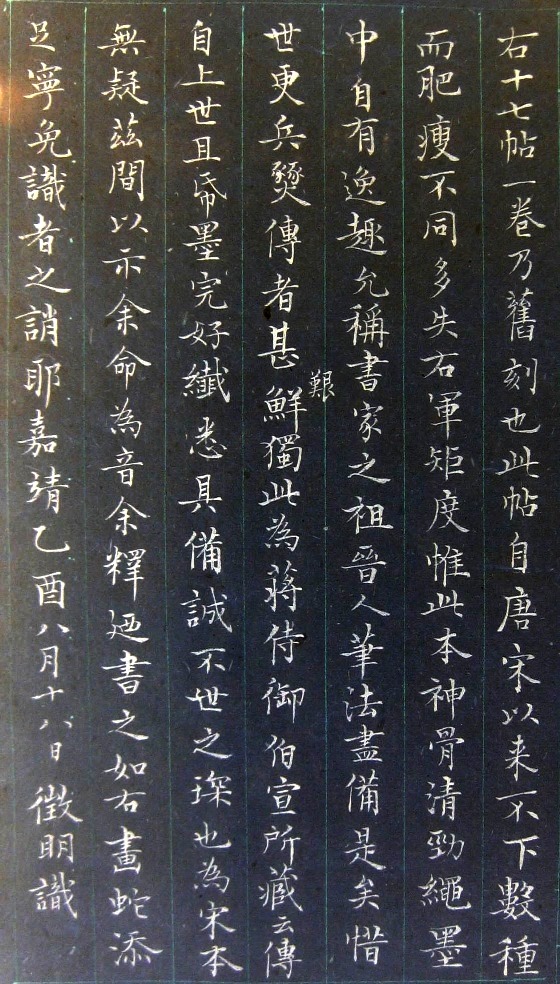 右十七帖一卷乃舊刻也此帖自唐宋以来不下數種
而肥瘦不同多失右軍矩度惟此本神骨清勁繩墨
中自有逸趣允稱書家之祖晉人筆法盡備是矣惜
世更兵燹傳者甚鮮獨此為蔣侍御伯宣所藏云傳
艱
自上世且帋墨完好纖悉具備誠不世之琛也為宋本
無疑茲間以示余命為音余釋廼書之如右畫蛇添
足寧免識者之誚耶嘉靖乙酉八月十八日徵明識